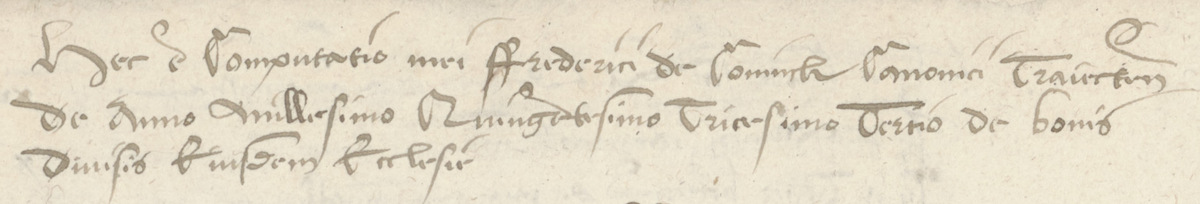 Hec e Computatio mei ffrederici de Coninck Canonici Traiecten
de Anno Millesimo Quingetesimo Tricesimo Tertio de bonis
diuisis Eiusdem Ecclesie